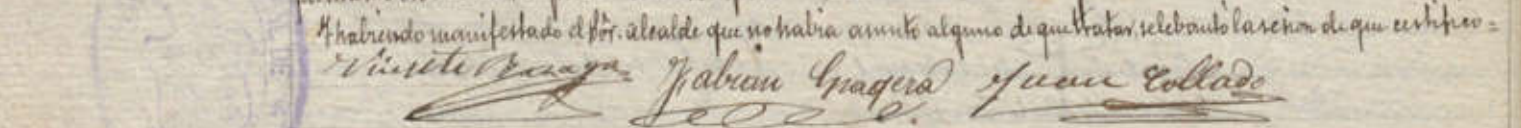 Y habiendo manifestado el Sòr. alcalde que no habia asunto alguno de que tratar, se lebantó la sesion de que certifico =
Vicente Fabian Gragera Juan Collado